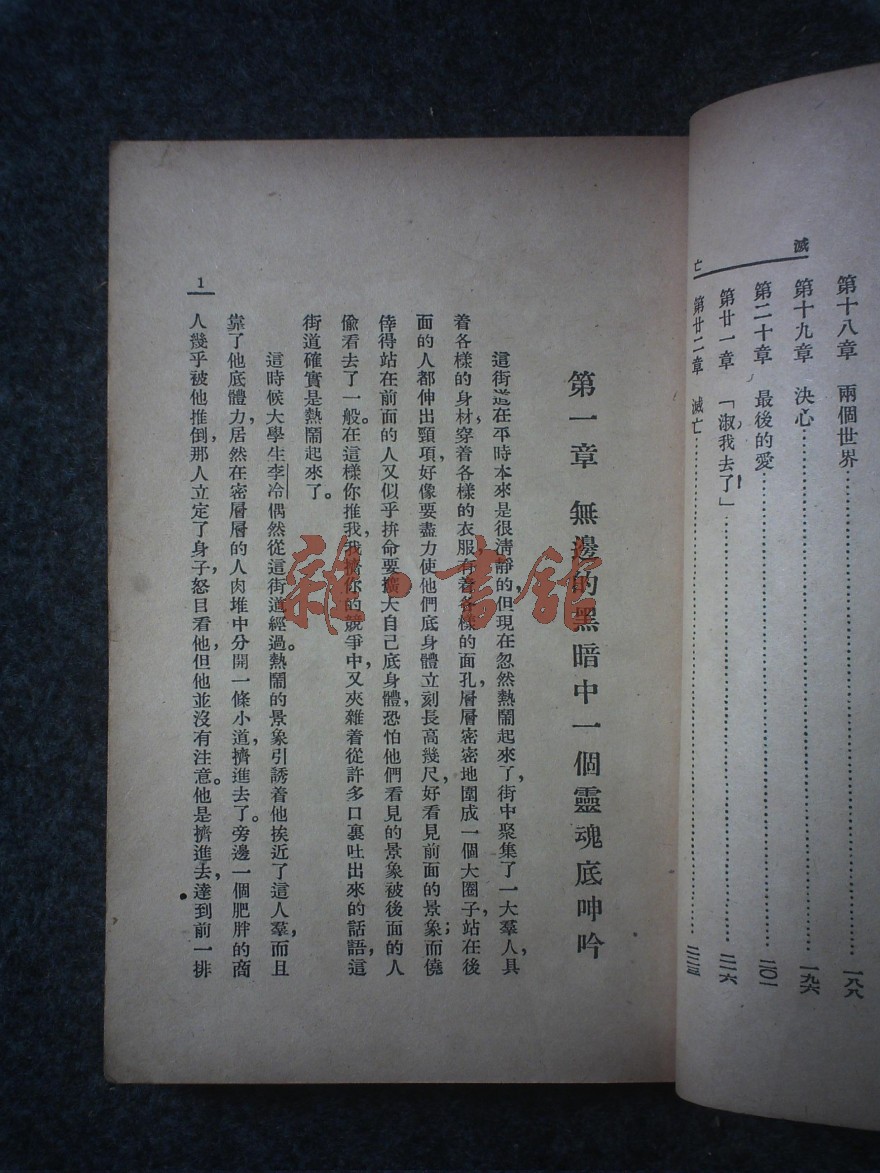 滅亡
第十八章 兩個世界⋯⋯一八八
第十九章 決心⋯⋯一九六
第二十章 最後的愛⋯⋯二〇一
第廿一章 「淑我去了」⋯⋯二一六
第廿二章 滅亡⋯⋯二二三
第一章 無邊的黑暗中一個靈魂底呻吟
這街道在平時本來是很清靜的,但現在忽然熱鬧起來了,街中聚集了一大羣人,具
着各樣的身材,穿着各樣的衣服,有着各樣的面孔,層層密密地圍成一個大圈子,站在後
面的人都伸出頸項,好像要盡力使他們底身體立刻長高幾尺,好看見前面的景象;而僥
倖得站在前面的人又似乎拚命要擴大自己底身體,恐怕他們看見的景象被後面的人
偸看去了一般。在這樣你推我,我擠你的競爭中,又夾雜着從許多口裏吐出來的話語,這
街道確實是熱鬧起來了。
這時候大學生李冷偶然從這街道經過。熱鬧的景象引誘着他挨近了這人羣,而且
靠了他底體力,居然在密層層的人肉堆中分開一條小道,擠進去了。旁邊一個肥胖的商
人幾乎被他推倒,那人立定了身子怒目看他,但他並沒有注意。他是擠進去,達到前一排
1
雜·書館